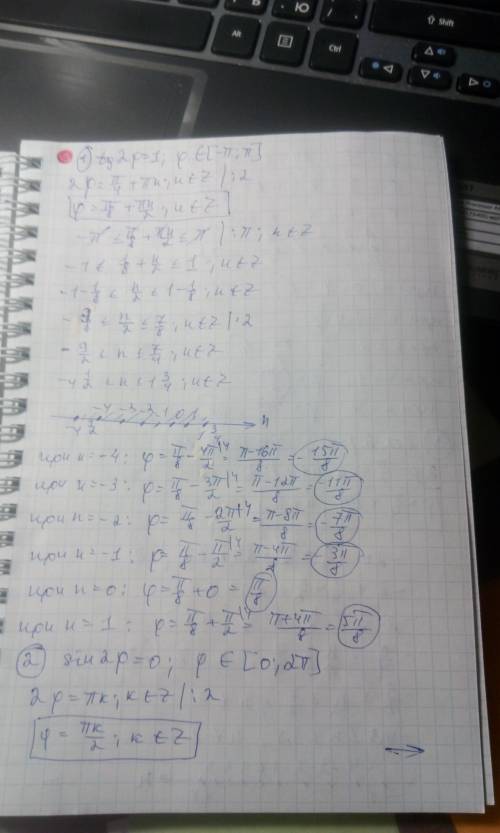 Alt
Ctrl
Shift
① tg2φ=1; φ∈[-π;π]
2φ=π/4+πn; n∈Z |:2
φ=π/8+πn/2; n∈Z
-π≤π/8+πn/2≤π |:π; n∈Z
-1≤1/8+n/2≤1; n∈Z
-1-1/8≤n/2≤1-1/8; n∈Z
-9/8≤n/2≤7/8; n∈Z |:2
-9/2≤n≤7/4; n∈Z
-4 1/2≤n≤1 3/4; n∈Z
-4 -3 -2 -1 0 1 n
при n=-4: φ=π/8-4π/2=π-16π/8=-15π/8
при n=-3: φ=π/8-3π/2=π-12π/8=-11π/8
при n=-2: φ=π/8-2π/2=π-8π/8=-7π/8
при n=-1: φ=π/8-π/2=π-4π/2=-3π/8
при n=0: φ=π/8+0=π/8
при n=1: φ=π/8+π/2=π+4π/8=5π/8
② sin2φ=0; φ∈[0;2π]
2φ=πk; k∈Z |:2
φ=πk/2; k∈Z